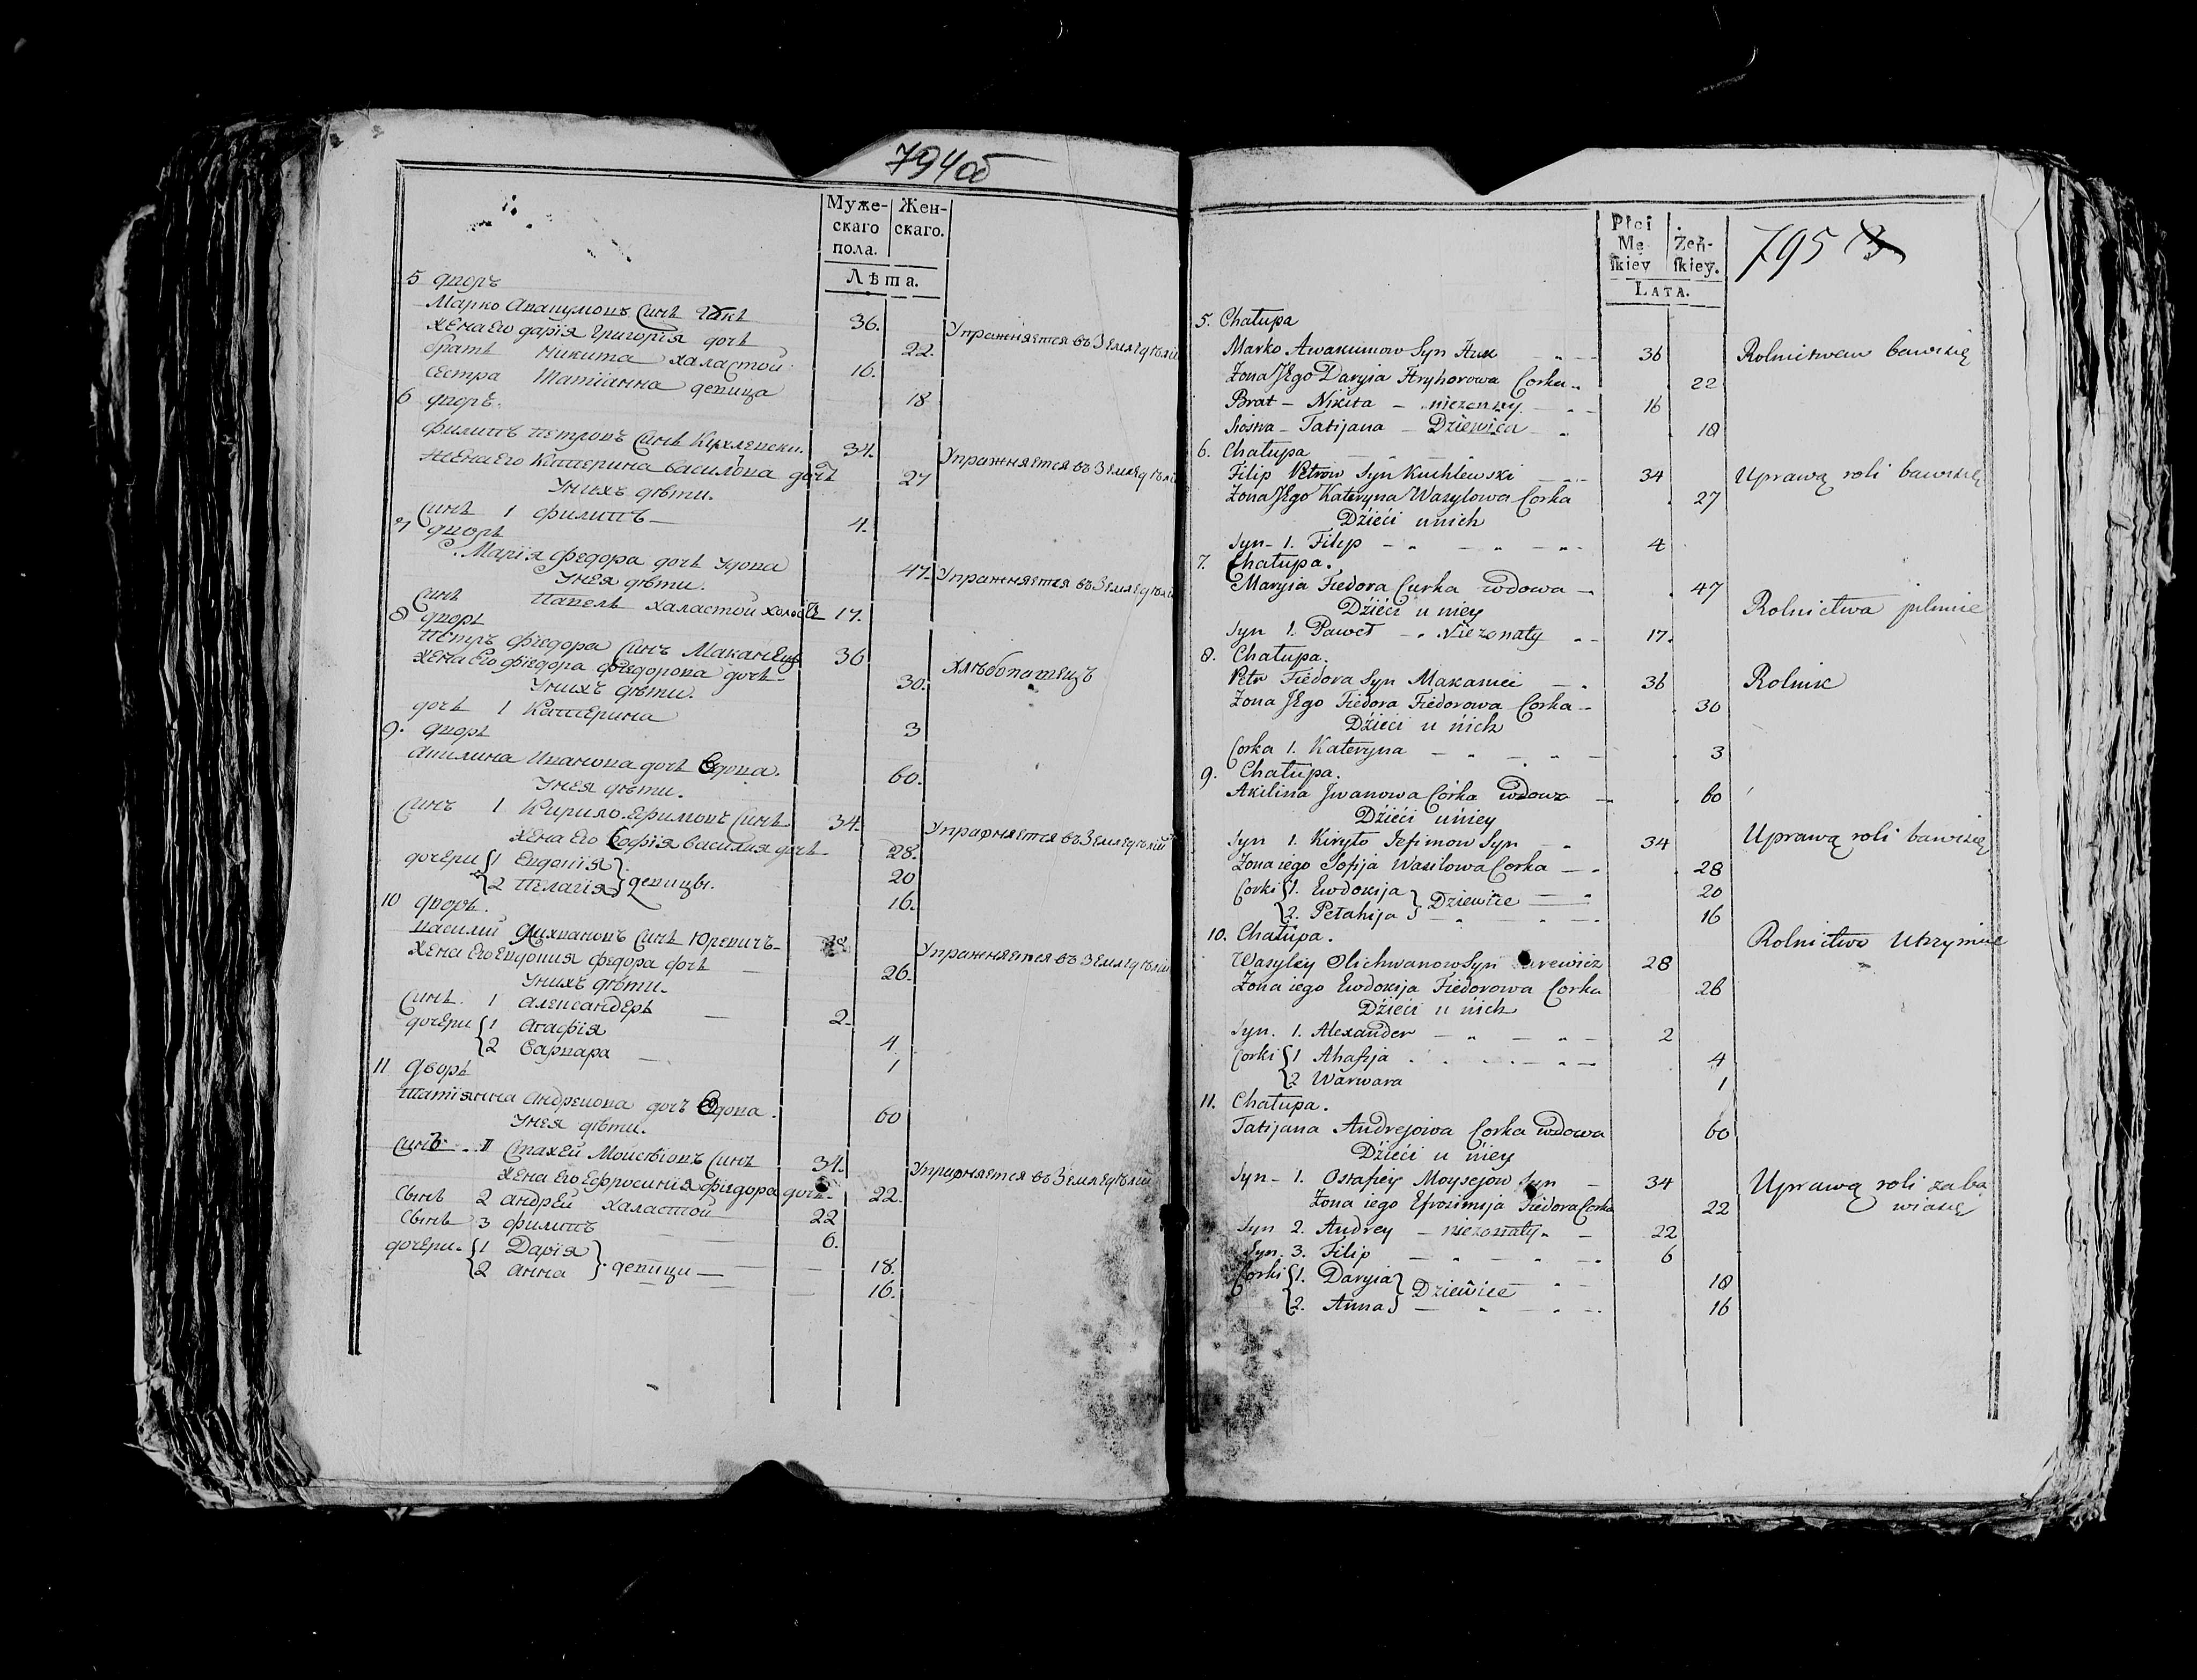 794об
Муже-
скаго
пола.
Жен-
скаго.
Лѣта.
5 дворъ
Марко Авакумовъ Синъ 36.
Жена Его дарія Григорія дочь 22. Упражняется въ Земледѣлій
братъ Никита халастой 16.
сестра Татіанна девица 18
6 дворъ.
Филипъ Петровъ Синъ Кухлевски. 34. Упражняется въ Земледѣлій
Жена Его Катерина василова дочь 27
Унихъ дѣти.
Синъ 1 филипъ 4.
7 дворъ
Марія федора дочь Удова 47. Упражняется въ Земледѣлій
Унея дѣти.
Синъ Павелъ халастой 17.
8 дворъ
Петръ Фіедора Синъ Маканец 36 хлѣбопашецъ
Жена Его фіедора фіедорова дочь 30.
Унихъ дѣти.
дочь 1 Катерина 3
9. дворъ
Акилина Иванова дочь Вдова. 60.
Унея дѣти.
Синъ 1 Кирило Ефимовъ Синъ 34. Упражняется въ Земледѣлій
Жена Его Софія василия дочь 28.
дочери {1 Евдокія } девицы. 20
{2 Пелагія } 16.
10 дворъ.
Василий Олихвановъ Синъ Юревичъ 28 Упражняется въ Земледѣлій
Жена Его Евдокия федора дочь 26.
Унихъ дѣти.
Синъ. 1 Александеръ 2.
дочери {1 Агафія 4
{2 Варвара 1
11 дворъ
Татіянна Андреиова дочь Вдова. 60
Унея дѣти.
Синъ 1 Стахей Мойсѣіовъ Синъ 34. Упражняется въ Земледѣлій
Жена Его Ефросинія Фидора дочь 22.
Сынъ 2 Андрей Халастой 22
Сынъ 3 филипъ 6.
дочери. {1 Дарія } девици 18.
{2 Анна } 16.
795
Płci
Mę
ſkiey
Żeń-
ſkiey.
LATA.
5. Chałupa
Marko Awakumow Syn 36 Rolnictwem bawi się
Żona Jego Daryia Hryhorowa Corka 22
Brat – Nikita – nieżonaty 16
Siostra – Tatijana – Dziewica 18
6. Chałupa
Filip Petrow Syn Kuchlewski 34 Uprawą roli bawi się
Żona Jego Kateryna Wasylowa Corka 27
Dzieći u nich
Syn – 1. Filip 4
7. Chałupa.
Maryia Fiedora Curka wdowa 47
Dzieći u niey Rolnictwa pilnuie
Syn 1. Paweł Nieżonaty 17.
8. Chałupa.
Petr Fiedora Syn Makaniec 36 Rolnik
Żona Jego Fiedora Fiedorowa Corka 30
Dzieći u nich
Corka 1. Kateryna 3
9. Chałupa.
Akilina Jwanowa Córka wdowa 60
Dzieći u niey
Syn 1. Kiryło Jefimow Syn 34 Uprawą roli bawi się
Żona iego Sofija Wasilowa Corka 28
Corki {1. Ewdokija } Dziewice 20
{2. Pełahija } 16
10. Chałupa. Rolnictwo Utrzymuie
Wasyley Olichwanow Syn Jurewicz 28
Żona iego Ewdokija Fiedorowa Corka 26
Dzieći u nich
Syn. 1. Alexander 2
Corki {1 Ahafija 4
{2 Warwara 1
11. Chałupa.
Tatijana Andrejowa Corka wdowa 60
Dzieći u niey
Syn – 1. Ostafiey Moysejow Syn 34 Uprawą roli zaba
Żona iego Efrosimija Fiedora Corka 22 wia się
Syn 2. Andrey – nieżonaty 22
Syn. 3. Filip 6
Corki {1. Daryia } Dziewice 18
{2. Anna } 16